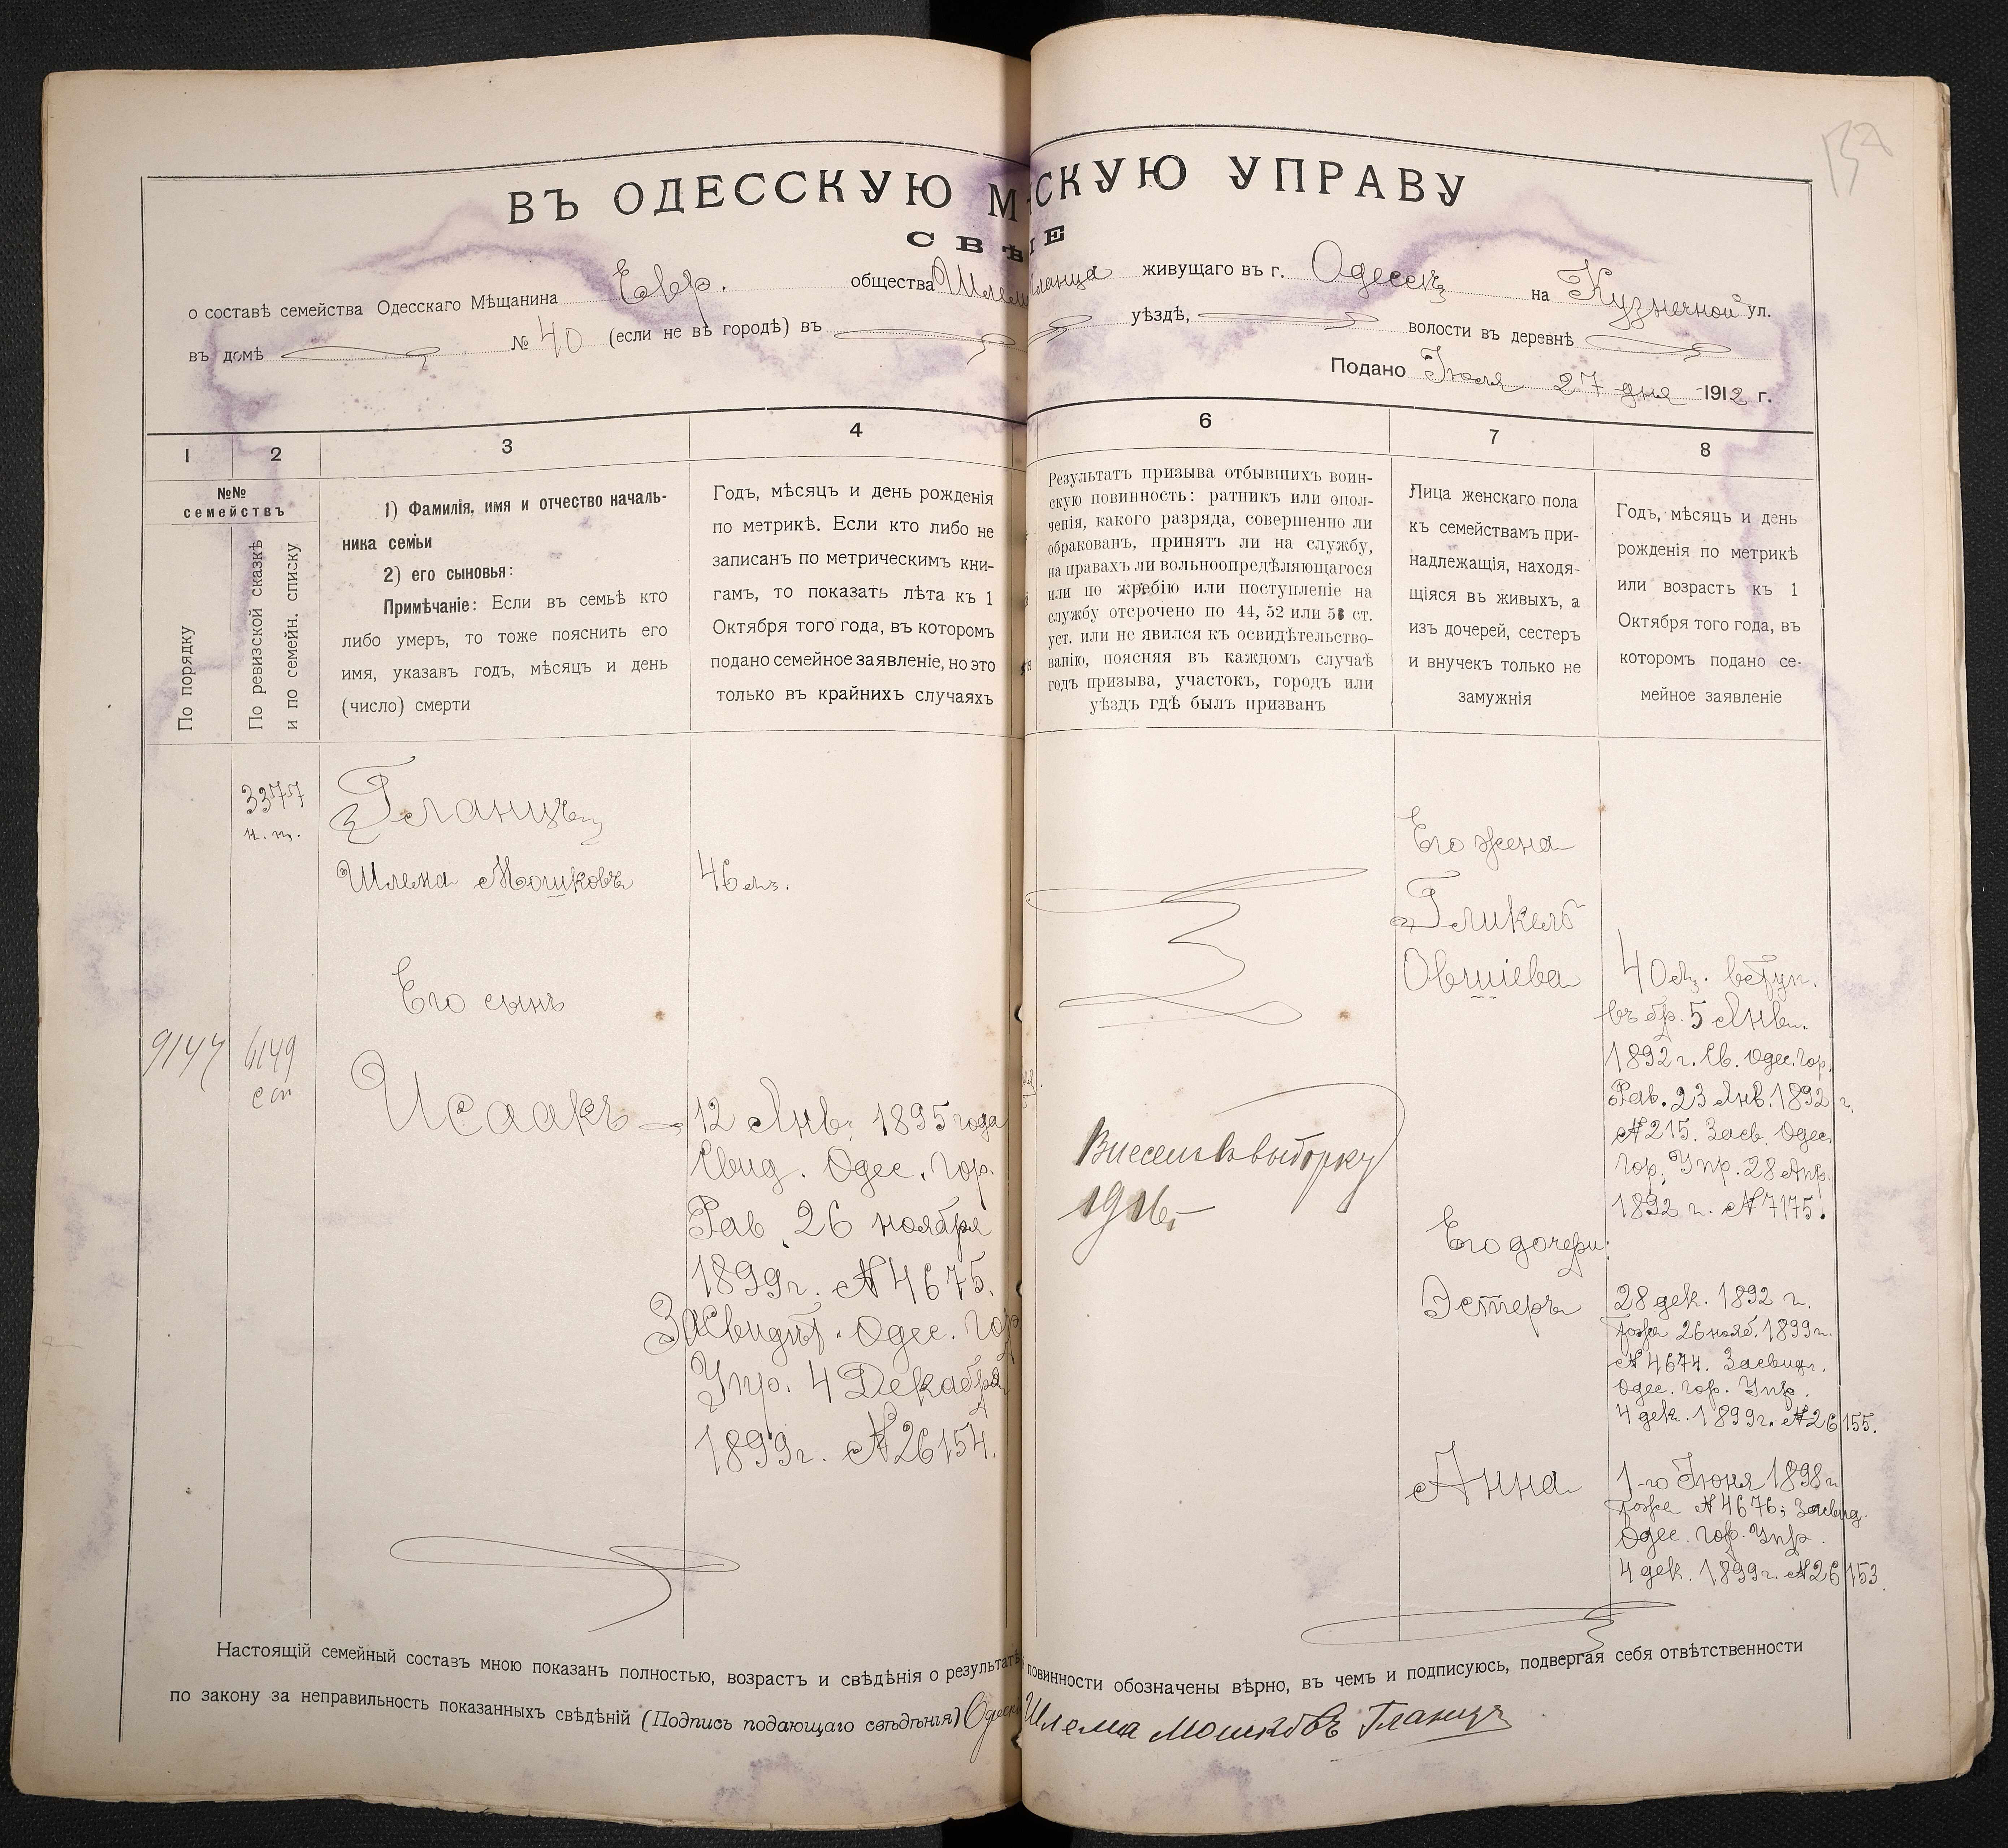 132
ВЪ ОДЕССКУЮ М СКУЮ УПРАВУ
СВѢ ІЕ
о составѣ семейства Одесскаго Мѣщанина Евр. общества Шлем Гланца живущаго въ г. Одессѣ на Кузнечной ул.
въ домѣ № 40 (если не въ городѣ) въ уѣздѣ, волости въ деревнѣ
Подано Іюля 27 дня 1912 г.
1 2 3 4 6 7 8
№№ семействъ
По порядку
По ревизской сказкѣ
и по семейн. списку
1) Фамилія, имя и отчество началь-
ника семьи
2) его сыновья:
Примѣчаніе: Если въ семьѣ кто
либо умеръ, то тоже пояснить его
имя, указавъ годъ, мѣсяцъ и день
(число) смерти
Годъ, мѣсяцъ и день рожденія
по метрикѣ. Если кто либо не
записанъ по метрическимъ кни-
гамъ, то показать лѣта къ 1
Октября того года, въ которомъ
подано семейное заявленіе, но это
только въ крайнихъ случаяхъ
Результатъ призыва отбывшихъ воин-
скую повинность: ратникъ или опол-
ченія, какого разряда, совершенно ли
обракованъ, принятъ ли на службу,
на правахъ ли вольноопредѣляющагося
или по жребію или поступленіе на
службу отсрочено по 44, 52 или 53 ст.
уст. или не явился къ освидѣтельство-
ванію, поясняя въ каждомъ случаѣ
годъ призыва, участокъ, городъ или
уѣздъ гдѣ былъ призванъ
Лица женскаго пола
къ семействамъ при-
надлежащія, находя-
щіяся въ живыхъ, а
изъ дочерей, сестеръ
и внучекъ только не
замужнія
Годъ, мѣсяцъ и день
рожденія по метрикѣ
или возрастъ къ 1
Октября того года, въ
которомъ подано се-
мейное заявленіе
3377
н. т.
Гланцъ
Шлема Мошковъ
46 л.
Его сынъ
9147
6149
сп
Исаакъ
12 Янв. 1895 года
Свид. Одес. Гор.
Рав. 26 ноября
1899 г. № 4675.
Засвидѣт. Одес. Гор
Упр. 4 Декабря
1899 г. № 26154.
Внесенъ въ выборку
1916 г.
Его жена
Гликель
Овшіева
40 л. вступ.
въ бр. 5 Янв.
1892 г. Св. Одес. Гор.
Рав. 23 Янв. 1892 г.
№ 215. Засв. Одес.
Гор. Упр. 28 Апр.
1892 г. № 7175.
Его дочери:
Эстеръ
28 дек. 1892 г.
тоже 26 нояб. 1899 г.
№ 4674. Засвид.
Одес. Гор. Упр.
4 дек. 1899 г. № 26155.
Анна
1-го Іюня 1898 г
тоже № 4676; Засвид.
Одес. Гор. Упр.
4 дек. 1899 г. № 26153.
Настоящій семейный составъ мною показанъ полностью, возрастъ и свѣдѣнія о результатѣ повинности обозначены вѣрно, въ чемъ и подписуюсь, подвергая себя отвѣтственности
по закону за неправильность показанныхъ свѣдѣній (Подпись подающаго свѣдѣнія) Одесск Шлема Мошковъ Гланцъ